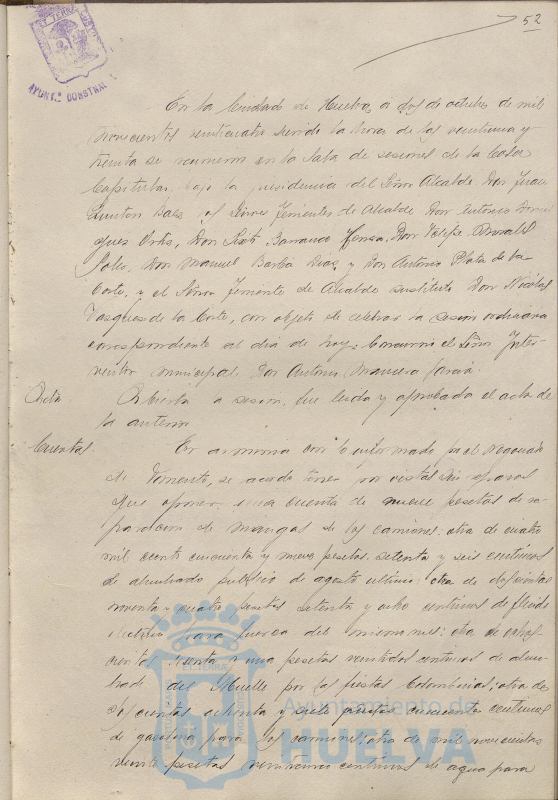 52
AYUNT.º CONSTITU
En la Ciudad de Huelva, a dos de octubre de mil
novecientos veinticuatro siendo la hora de las veintiuna y
treinta se reunieron en la Sala de sesiones de la Casa
Capitular, bajo la presidencia del Señor Alcalde Don Juan
Quintero Baez, los Señores Tenientes de Alcalde Don Antonio
Don Barranco Don Felipe Morales
Don Manuel Barba Diaz, y Don Antonio Plata de la
Corte, y el Señor Teniente de Alcalde sustituto Don Nicolás
Vazquez de la Corte, con objeto de celebrar la sesion ordinaria
correspondiente al dia de hoy. Concurrió el Señor Inter-
ventor municipal, Don Antonio Garcia.
Acta
Abierta la sesion, fue leida y aprobada el acta de
la anterior
Cuentas
En armonia con lo informado por el Negociado
de Fomento, se acordo tener por vistas sin reparos
que oponer, una cuenta de nueve pesetas de re-
paracion de mangas de los camiones; otra de cuatro
mil ciento cincuenta y nueve pesetas setenta y seis centimos
de alumbrado publico de agosto ultimo; otra de doscientas
noventa y cuatro pesetas setenta y ocho centimos de fluido
electrico para fuerza del mismo mes; otra de
cientas y una pesetas veintidos centimos de alum-
brado del Muelle por las fiestas Colombinas; otra de
cientas ochenta y siete pesetas cincuenta centimos
de gasolina para los camiones; otra de mil novecientas
veinte pesetas veintiuno centimos de agua para
Ayuntamiento de
HUELVA